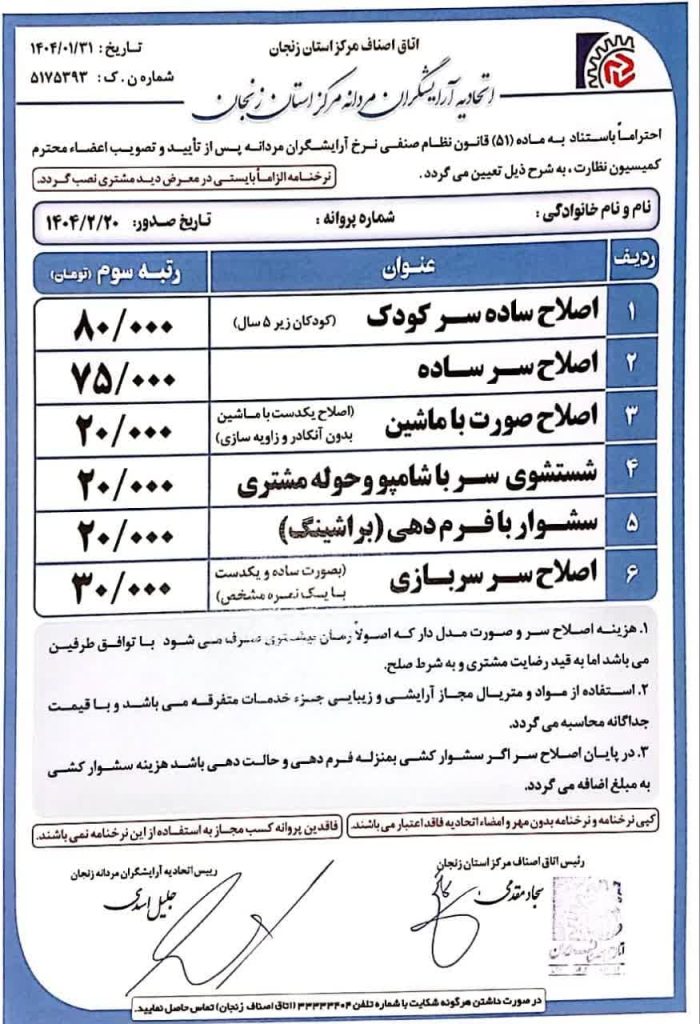 اتاق اصناف مرکز استان زنجان
تاریخ: ۱۴۰۴/۰۱/۳۱
اتحادیه آرایشگران مردانه مرکز استان زنجان
شماره ن.ک: ۵۱۷۵۳۹۳
احتراماً باستناد به ماده (۵۱) قانون نظام صنفی نرخ آرایشگران مردانه پس از تأیید و تصویب اعضاء محترم
کمیسیون نظارت، به شرح ذیل تعیین می گردد. نرخنامه الزاماً بایستی در معرض دید مشتری نصب گردد.
نام و نام خانوادگی: شماره پروانه: تاریخ صدور: ۱۴۰۴/۲/۲۰
ردیف عنوان رتبه سوم (تومان)
۱ اصلاح ساده سر کودک (کودکان زیر ۵ سال) ۸۰/۰۰۰
۲ اصلاح سر ساده ۷۵/۰۰۰
۳ اصلاح صورت با ماشین (اصلاح یکدست با ماشین بدون آنکادر و زاویه سازی) ۲۰/۰۰۰
۴ شستشوی سر با شامپو و حوله مشتری ۲۰/۰۰۰
۵ سشوار با فرم دهی (براشینگ) ۲۰/۰۰۰
۶ اصلاح سر سربازی (بصورت ساده و یکدست با یک نمره مشخص) ۳۰/۰۰۰
۱. هزینه اصلاح سر و صورت مدل دار که اصولاً زمان بیشتری صرف می شود با توافق طرفین
می باشد اما به قید رضایت مشتری و به شرط صلح.
۲. استفاده از مواد و متریال مجاز آرایشی و زیبایی جزء خدمات متفرقه می باشد و با قیمت
جداگانه محاسبه می گردد.
۳. در پایان اصلاح سر اگر سشوار کشی بمنزله فرم دهی و حالت دهی باشد هزینه سشوار کشی
به مبلغ اضافه می گردد.
کپی نرخنامه و نرخنامه بدون مهر و امضاء اتحادیه فاقد اعتبار می باشند. فاقدین پروانه کسب مجاز به استفاده از این نرخنامه نمی باشند.
رئیس اتاق اصناف مرکز استان زنجان
سجاد مقدمی
رییس اتحادیه آرایشگران مردانه زنجان
جلیل اسدی
در صورت داشتن هرگونه شکایت با شماره تلفن ۳۳۳۳۳۴۰۴ (اتاق اصناف زنجان) تماس حاصل نمایید.